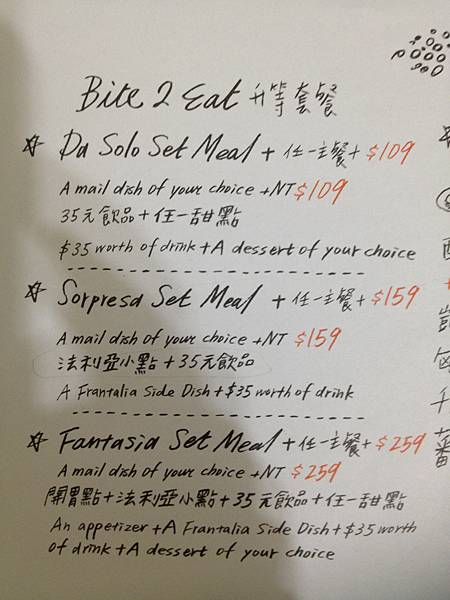 Bite 2 Eat 升等套餐
☆ Da Solo Set Meal + 任一主餐 + $109
A mail dish of your choice +NT $109
35元飲品+任一甜點
$35 worth of drink +A dessert of your choice
☆ Sorpresa Set Meal + 任一主餐 + $159
A mail dish of your choice +NT $159
法利亞小點+35元飲品
A Frantalia Side Dish +$35 worth of drink
☆ Fantasia Set Meal + 任一主餐 + $259
A mail dish of your choice +NT $259
開胃點+法利亞小點+35元飲品+任一甜點
An appetizer +A Frantalia Side Dish +$35 worth
of drink +A dessert of your choice